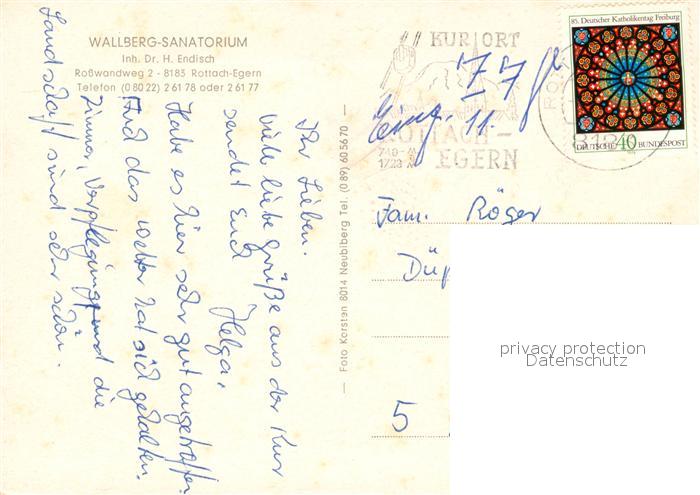 WALLBERG-SANATORIUM
Inh. Dr. H. Endisch
Roßwandweg 2 - 8183 Rottach-Egern
Telefon (0 80 22) 2 61 78 oder 2 61 77
Ihr Lieben.
viele liebe Grüße aus der Kur
sendet Euch Helga.
Habe es hier sehr gut angetroffen
Und das Wetter hat sich gehalten.
Zimmer, Verpflegung und die
Landschaft sind sehr schön.
— Foto Kersten 8014 Neubiberg Tel. (0 89) 60 56 70 —
KURORT
ROTTACH-
EGERN
Eing. 11.
85. Deutscher Katholikentag Freiburg
DEUTSCHE 40 BUNDESPOST
Fam. Röger
Düp
5
privacy protection
Datenschutz